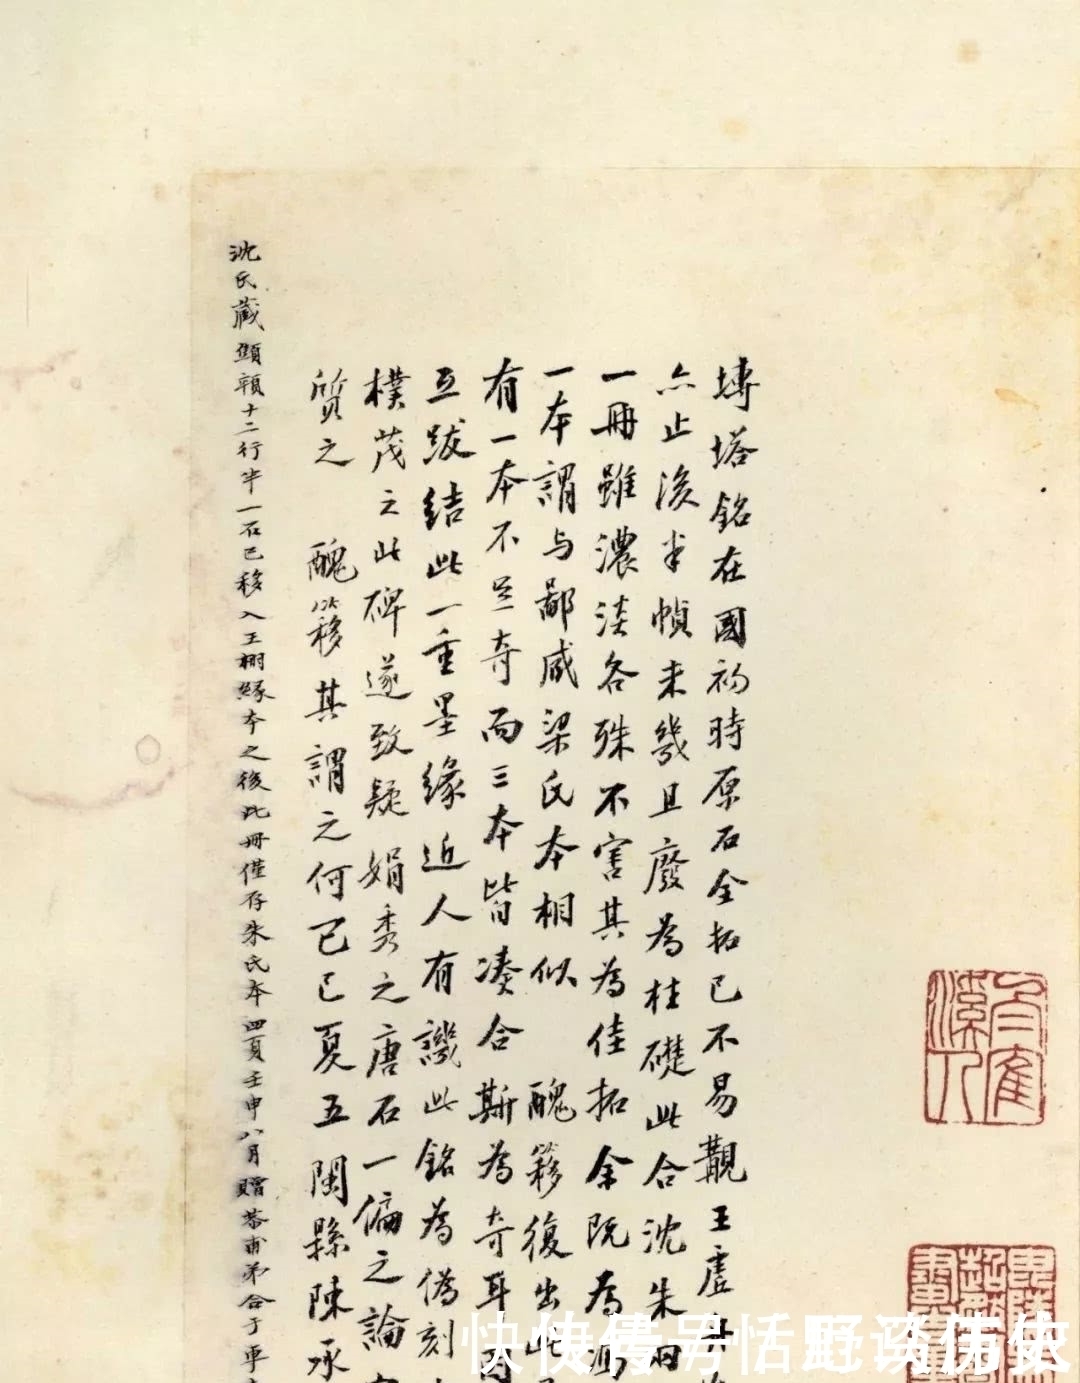 塼塔銘在國初時原石全拓已不易覯王虛舟
亦止後半幀未幾且廢為柱礎此合沈朱兩
一冊雖濃淡各殊不害其為佳拓余既為馮
一本謂与鄙咸梁氏本相似 醜簃復出此
有一本不足奇而三本皆湊合斯為奇耳因
互跋結此一重墨緣近人有譏此銘為偽刻
樸茂之此碑遂致疑娟秀之唐石一偏之論
質之 醜簃其謂之何己巳夏五閩縣陳承
沈氏藏顯頟十二行半一石已移入王栩緣本之後此冊僅存朱氏本 四夏壬申八月贈恭甫弟合于